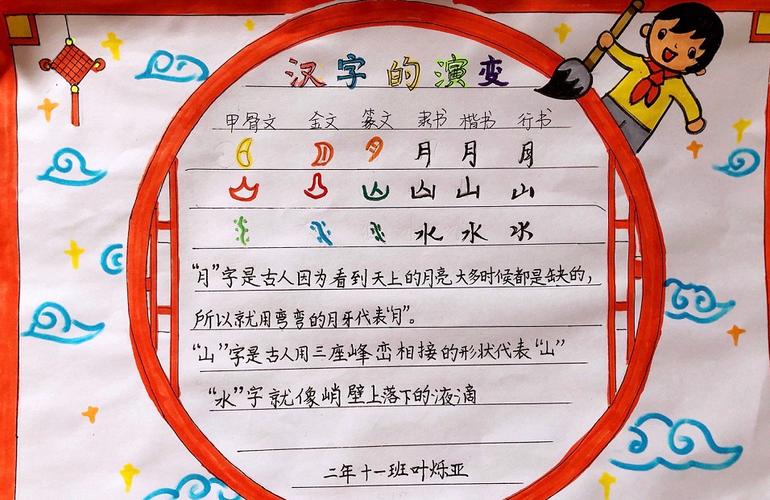 汉字的演变
甲骨文 金文 篆文 隶书 楷书 行书
月 月 月
山 山 山
水 水 水
“月”字是古人因为看到天上的月亮大多时候都是缺的，
所以就用弯弯的月牙代表“月”。
“山”字是古人用三座峰峦相接的形状代表“山”
“水”字就像峭壁上落下的液滴
二年十一班叶烁亚